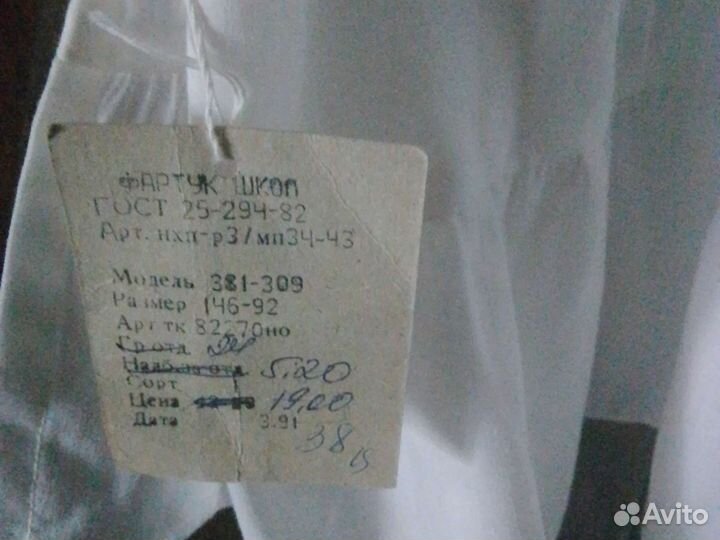 ФАРТУК ШКОЛ
ГОСТ 25-294-82
Арт. нхп-р3/мп34-43
Модель 381-309
Размер 146-92
Арт тк 82270но
Гр отд
Надб за отд 5.20
Сорт
Цена 19,00
Дата 3.91
38
Avito